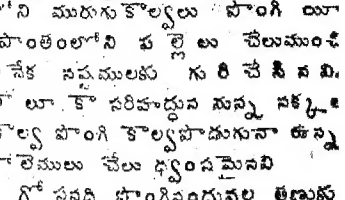 ని మురుగు కాల్వలు పొంగి యీ
ప్రాంతంలోని పల్లెలు చేలుముంచి
నేక నష్టములకు గురి చేసినవి.
లూ.కా సరిహద్దున నున్న నక్కల
కాల్వ పొంగి కాల్వపొడుగునా ఉన్న
లెములు చేలు ధ్వంసమైనవి
నది పొంగినందువల్ల తణుకు